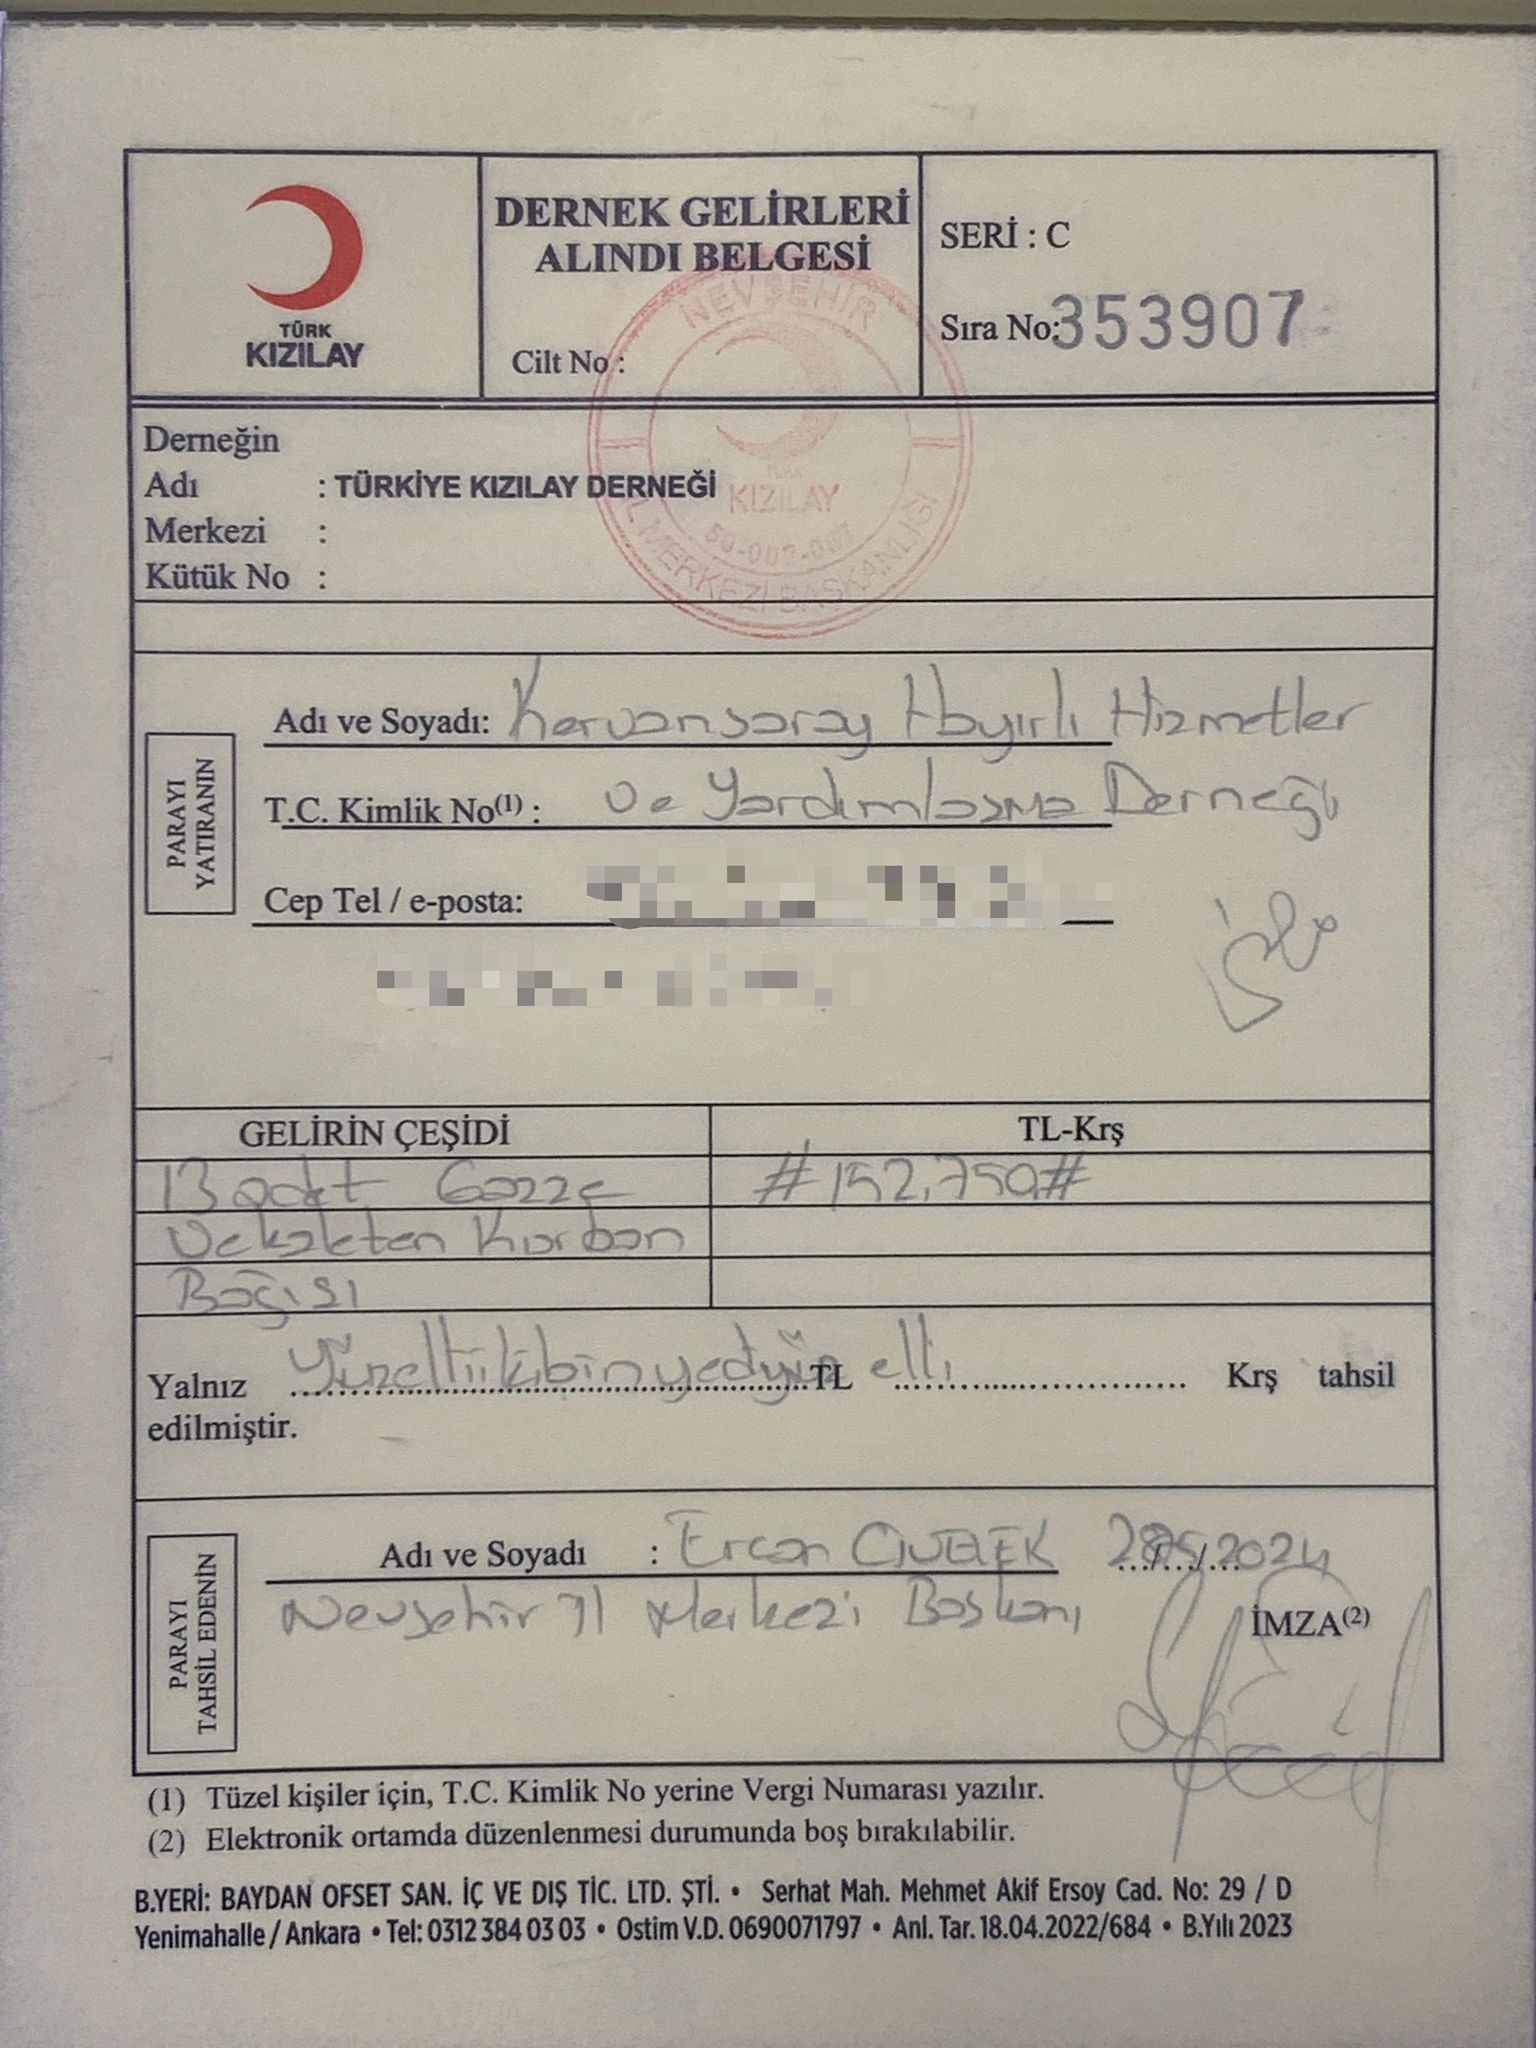 TÜRK
KIZILAY
DERNEK GELİRLERİ
ALINDI BELGESİ
Cilt No :
SERİ : C
Sıra No: 353907
NEVŞEHİR
KIZILAY
İL MERKEZİ BAŞKANLIĞI
Derneğin
Adı : TÜRKİYE KIZILAY DERNEĞİ
Merkezi :
Kütük No :
PARAYI
YATIRANIN
Adı ve Soyadı: Kervansaray Hayırlı Hizmetler
T.C. Kimlik No(1) : ve Yardımlaşma Derneği
Cep Tel / e-posta:
GELİRİN ÇEŞİDİ TL-Krş
13 adet Gazze #152.750#
Vekaleten Kurban
Bağışı
Yalnız Yüzelliikibinyediyüz TL elli Krş tahsil
edilmiştir.
PARAYI
TAHSİL EDENİN
Adı ve Soyadı : Ercan CİVELEK 28/5/2024
Nevşehir İl Merkezi Başkanı
İMZA(2)
(1) Tüzel kişiler için, T.C. Kimlik No yerine Vergi Numarası yazılır.
(2) Elektronik ortamda düzenlenmesi durumunda boş bırakılabilir.
B.YERİ: BAYDAN OFSET SAN. İÇ VE DIŞ TİC. LTD. ŞTİ. • Serhat Mah. Mehmet Akif Ersoy Cad. No: 29 / D
Yenimahalle / Ankara • Tel: 0312 384 03 03 • Ostim V.D. 0690071797 • Anl. Tar. 18.04.2022/684 • B.Yılı 2023